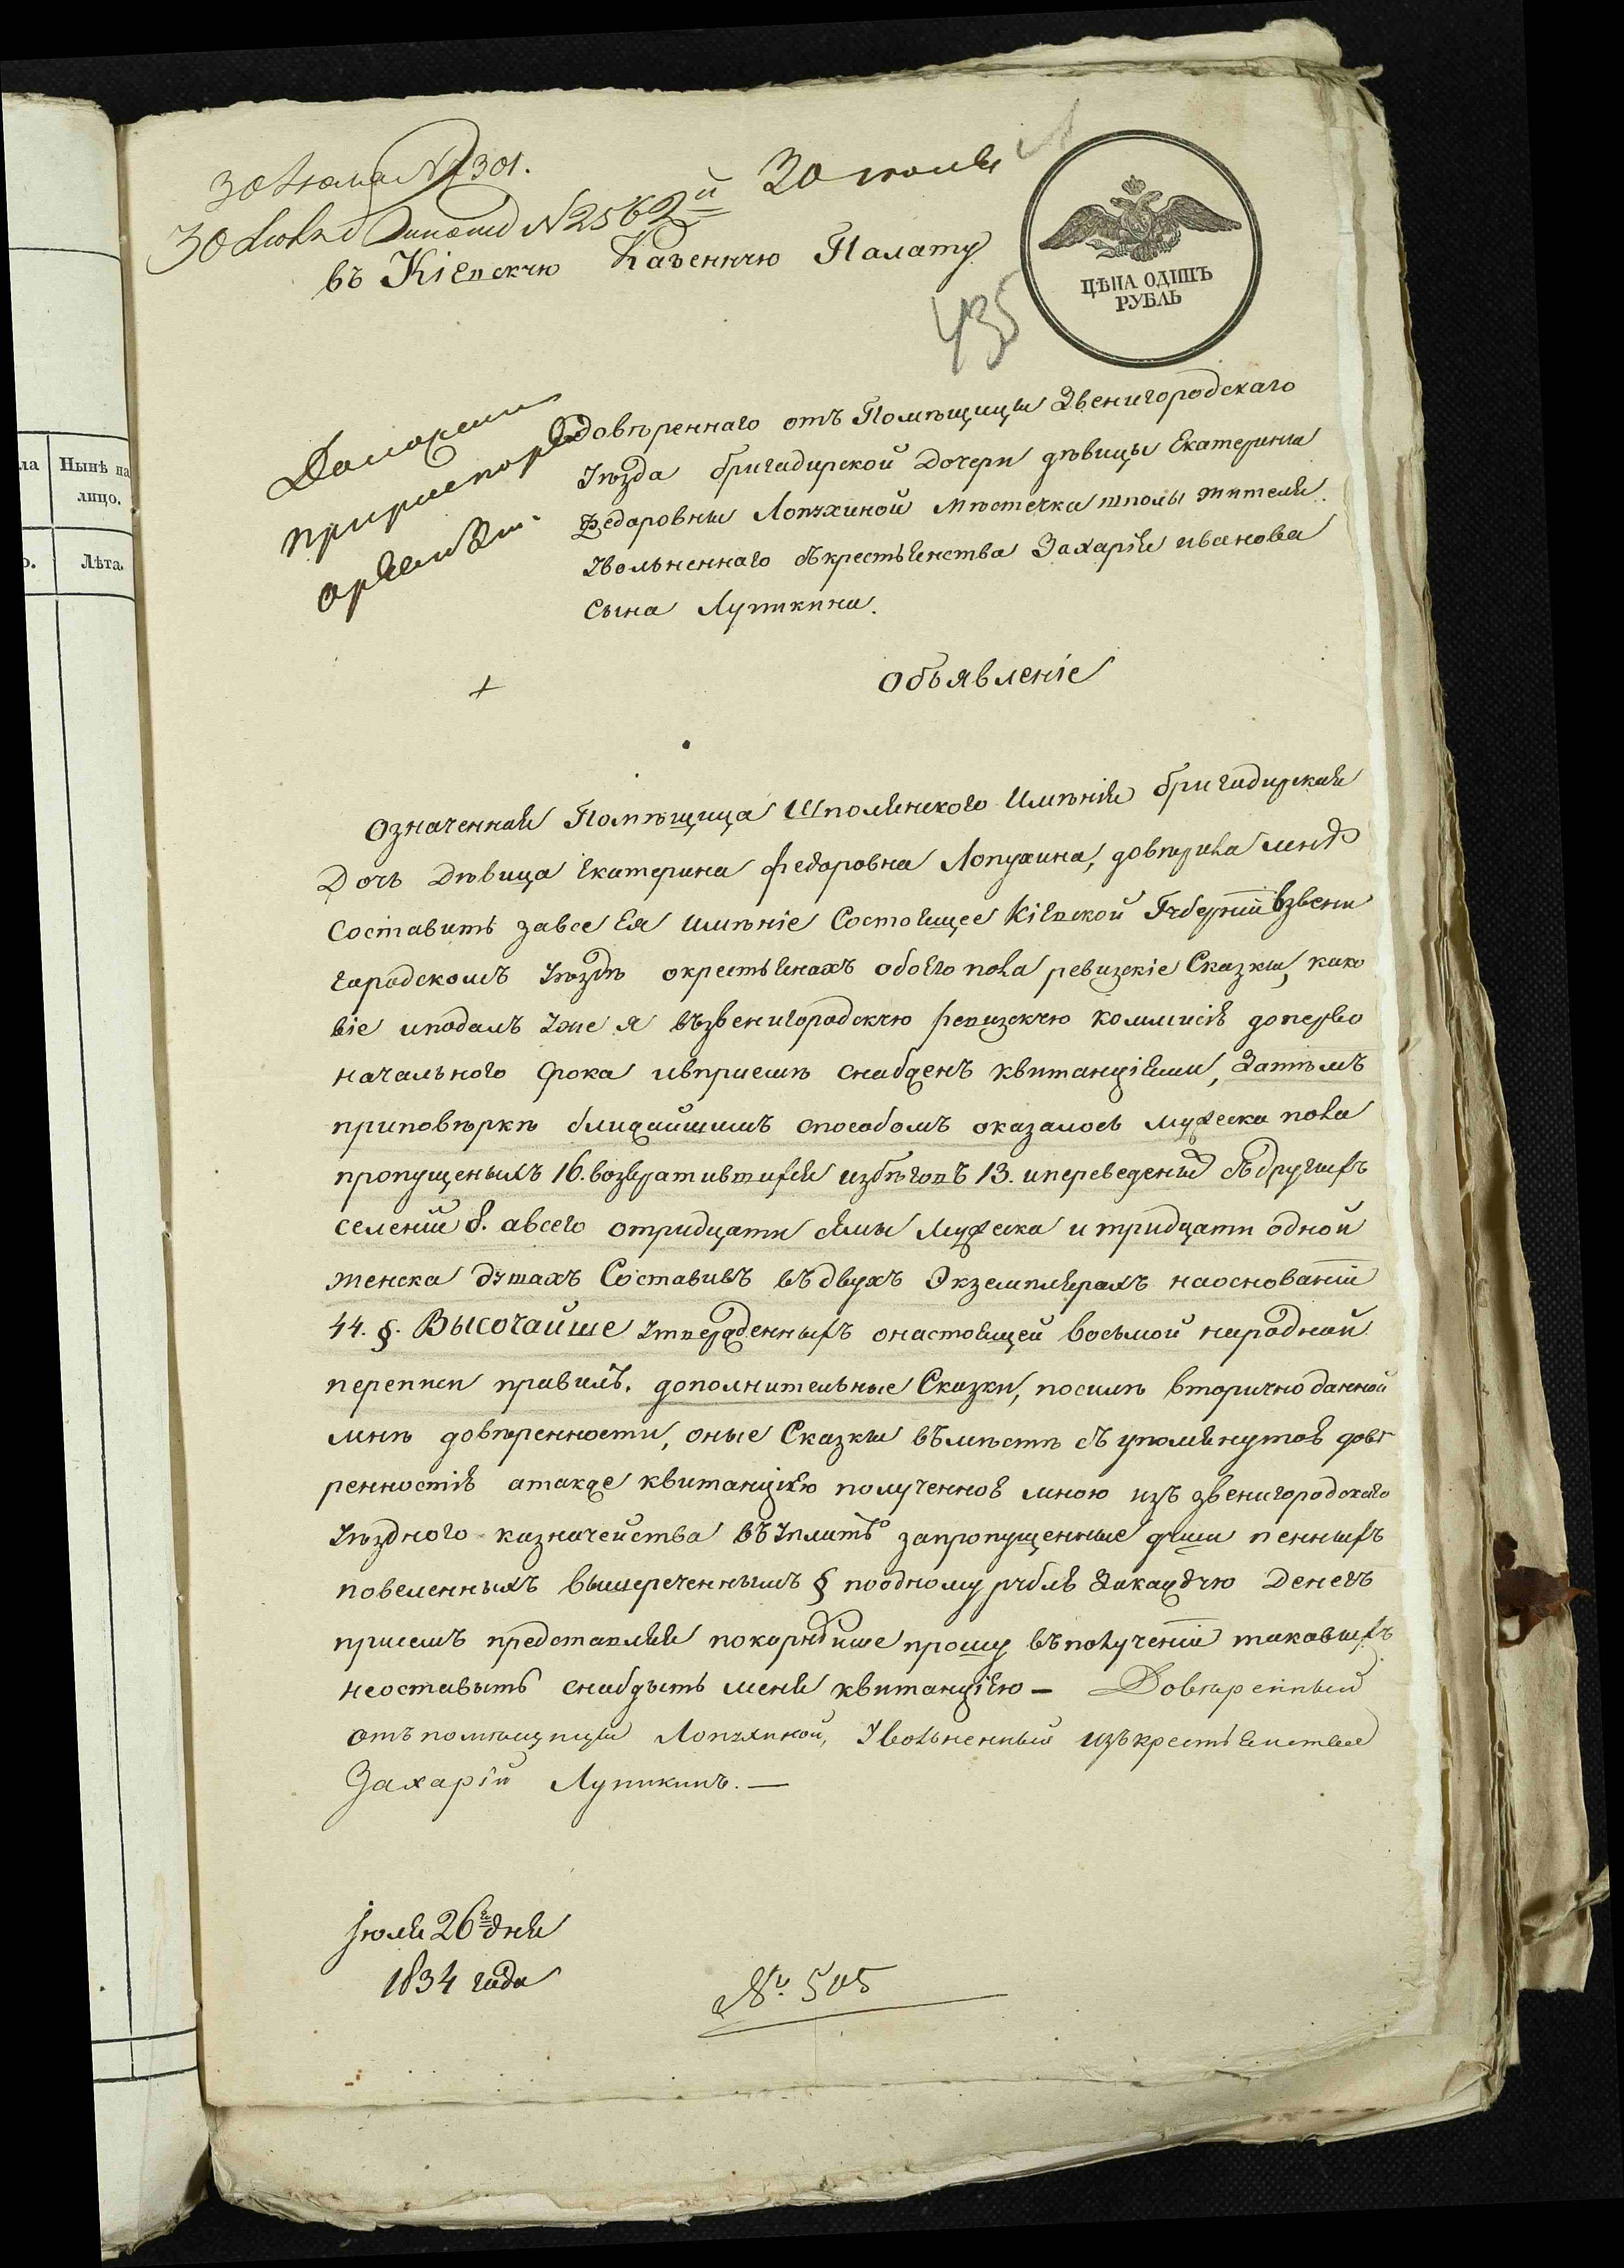 30 Июля № 301.
30 Июля № 2562й 30 июля
въ Кіевскую Казенную Палату
ЦѢНА ОДИНЪ
РУБЛЬ
435
ла
Нынѣ на
лицо.
Лѣта.
довѣреннаго отъ Помѣщицы Звенигородскаго
Уѣзда бригадирской Дочери дѣвицы Екатерины
Федоровны Лопухиной мѣстечка шполы жителя
Увольненнаго съкрестьянства Захарія иванова
Сына Лупикина.
Объявленіе
Означенная Помѣщица Шполянского Имѣнія бригадирская
Дочь Дѣвица Екатерина Федоровна Лопухина, довѣрила мнѣ
Составить завсе Ея имѣніе Состоящее Кіевской Губерніи взвени
городскомъ Уѣздѣ окрестьянахъ обоего пола ревизскіе Сказки, како
віе иподалъ Уже я възвенигородскую ревизскую коммисію доперво
начального срока ивпріемѣ снабденъ квитанціями, Затѣмъ
приповѣркѣ ближайшимъ способомъ оказалось мужеска пола
пропущеныхъ 16. возвратившихся избѣговъ 13. ипереведены съдругихъ
селеній 8. авсего отридцати семы Мужеска и тридцати одной
женска душахъ Составивъ въдвухъ Экземплярахъ наоснованіи
44. §. Высочайше Утвержденныхъ онастоящей восьмой народной
переписи правилъ. дополнительные Сказки, посилѣ вторично данной
мнѣ довѣренности, оные Сказки въмѣстѣ съ упомянутою довѣ
ренностію атакже квитанцію полученною мною изъ звенигородскаго
Уѣздного казначейства въУплатѣ запропущенные души пенныхъ
повеленныхъ вышереченнымъ § поодному рублю Закаждую Денегъ
приемъ представляя покорнѣйше прошу въполученіи таковыхъ
неоставыть снабдыть меня квитанціею — Довѣренный
отъ помѣщицы Лопухиной, Увольненный изъкрестьянства
Захарій Лупикинъ. —
Іюля 26го дня
1834 года
№ 505